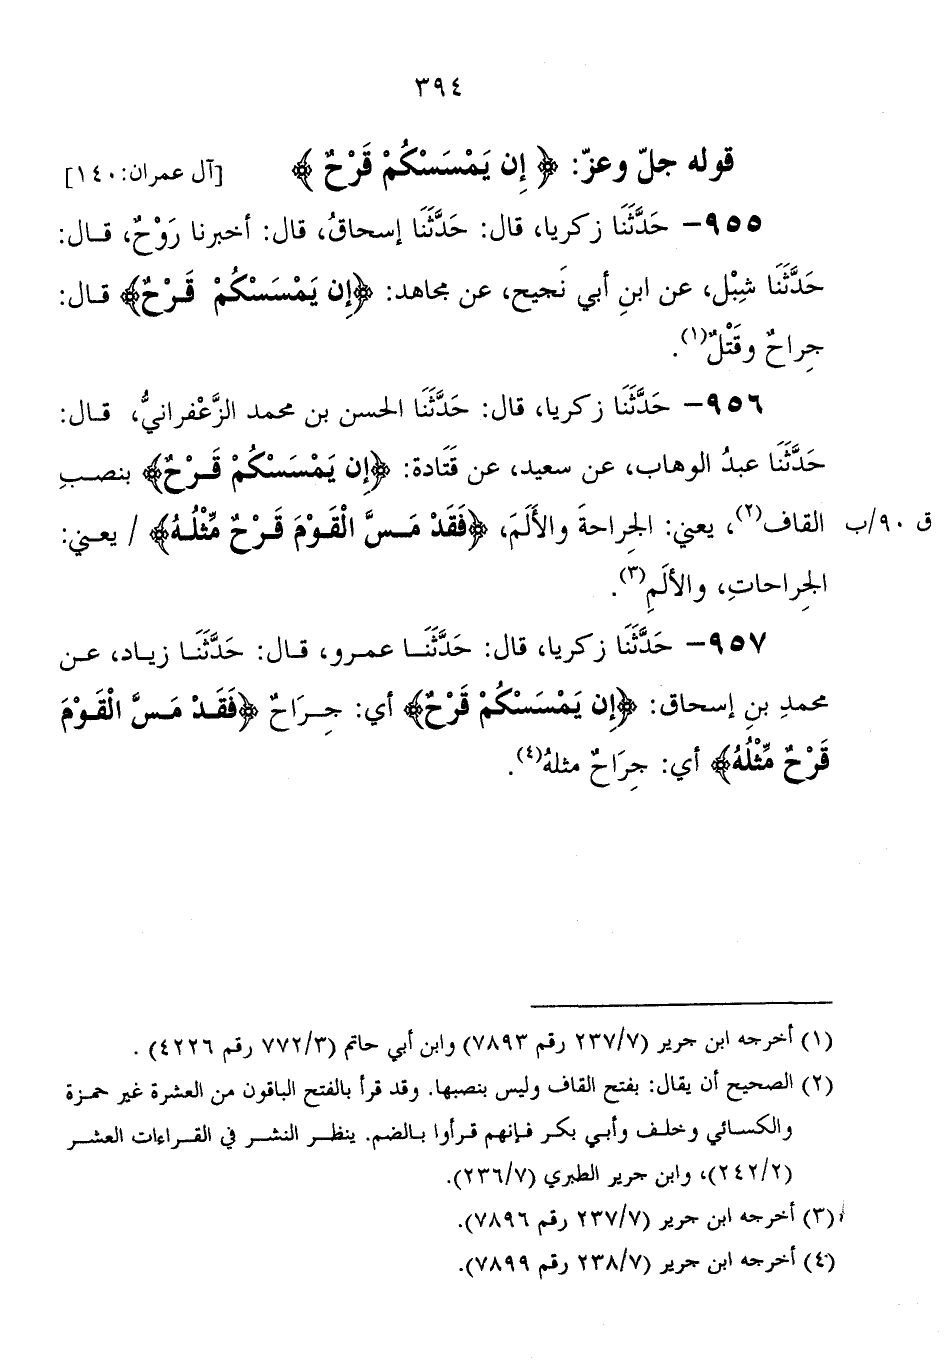 ٣٩٤
قوله جلّ وعزّ: ﴿ إِن يَمْسَسْكُمْ قَرْحٌ ﴾ [آل عمران: ١٤٠]
٩٥٥- حَدَّثَنَا زكريا، قال: حَدَّثَنَا إسحاقُ، قال: أخبرنا رَوْحٌ، قـال:
حَدَّثَنَا شِبْل، عن ابنِ أبي نَجيح، عن مجاهد: ﴿إِن يَمْسَسْكُمْ قَـرْحٌ﴾ قـال:
جِراحٌ وقَتْلٌ(١).
٩٥٦- حَدَّثَنَا زكريا، قال: حَدَّثَنَا الحسن بن محمد الزَّعْفرانيُّ، قـال:
حَدَّثَنَا عبدُ الوهاب، عن سعيد، عن قَتَادة: ﴿إِن يَمْسَسْكُمْ قَـرْحٌ﴾ بنصـبِ
القاف(٢)، يعني: الجِراحةَ والأَلَمَ، ﴿فَقَدْ مَـسَّ الْقَـوْمَ قَـرْحٌ مِّثْلُـهُ﴾ / يعـني: ق ٩٠/ب
الجِراحاتِ، والألَمِ(٣).
٩٥٧- حَدَّثَنَا زكريا، قال: حَدَّثَنَــا عمـرو، قـال: حَدَّثَنَـا زيـاد، عـن
محمدِ بنِ إسحاق: ﴿إِن يَمْسَسْكُمْ قَرْحٌ﴾ أي: جِـرَاحٌ ﴿فَقَـدْ مَـسَّ الْقَـوْمَ
قَرْحٌ مِّثْلُهُ﴾ أي: جِرَاحٌ مثلهُ(٤).
(١) أخرجه ابن جرير (٢٣٧/٧ رقم ٧٨٩٣) وابن أبي حاتم (٧٧٢/٣ رقم ٤٢٢٦) .
(٢) الصحيح أن يقال: بفتح القاف وليس بنصبها. وقد قرأ بالفتح الباقون من العشرة غير حمـزة
والكسـائي وخلـف وأبـي بكـر فـإنهم قـرأوا بـالضم. ينظـر النشـر في القـراءات العشـر
(٢٤٢/٢)، وابن جرير الطبري (٢٣٦/٧).
(٣) أخرجه ابن جرير (٢٣٧/٧ رقم ٧٨٩٦).
(٤) أخرجه ابن جرير (٢٣٨/٧ رقم ٧٨٩٩).